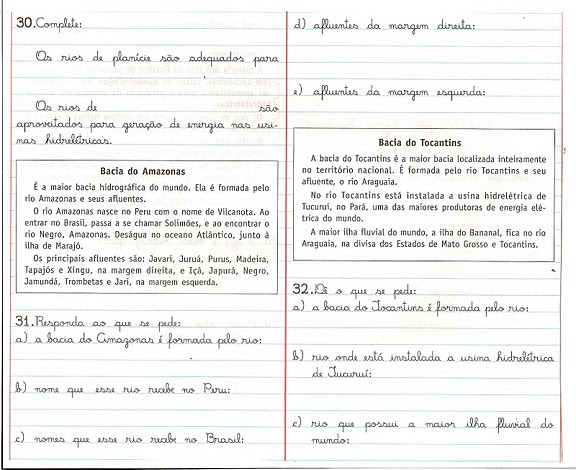 30. Complete:
Os rios de planície são adequados para
Os rios de são
aproveitados para geração de energia nas usi-
nas hidrelétricas.
Bacia do Amazonas
É a maior bacia hidrográfica do mundo. Ela é formada pelo
rio Amazonas e seus afluentes.
O rio Amazonas nasce no Peru com o nome de Vilcanota. Ao
entrar no Brasil, passa a se chamar Solimões, e ao encontrar o
rio Negro, Amazonas. Deságua no oceano Atlântico, junto à
ilha de Marajó.
Os principais afluentes são: Javari, Juruá, Purus, Madeira,
Tapajós e Xingu, na margem direita, e Içá, Japurá, Negro,
Jamundá, Trombetas e Jari, na margem esquerda.
31. Responda ao que se pede:
a) a bacia do Amazonas é formada pelo rio:
b) nome que esse rio recebe no Peru:
c) nomes que esse rio recebe no Brasil:
d) afluentes da margem direita:
e) afluentes da margem esquerda:
Bacia do Tocantins
A bacia do Tocantins é a maior bacia localizada inteiramente
no território nacional. É formada pelo rio Tocantins e seu
afluente, o rio Araguaia.
No rio Tocantins está instalada a usina hidrelétrica de
Tucuruí, no Pará, uma das maiores produtoras de energia elé-
trica do mundo.
A maior ilha fluvial do mundo, a ilha do Bananal, fica no rio
Araguaia, na divisa dos Estados de Mato Grosso e Tocantins.
32. Dê o que se pede:
a) a bacia do Tocantins é formada pelo rio:
b) rio onde está instalada a usina hidrelétrica
de Tucuruí:
c) rio que possui a maior ilha fluvial do
mundo: